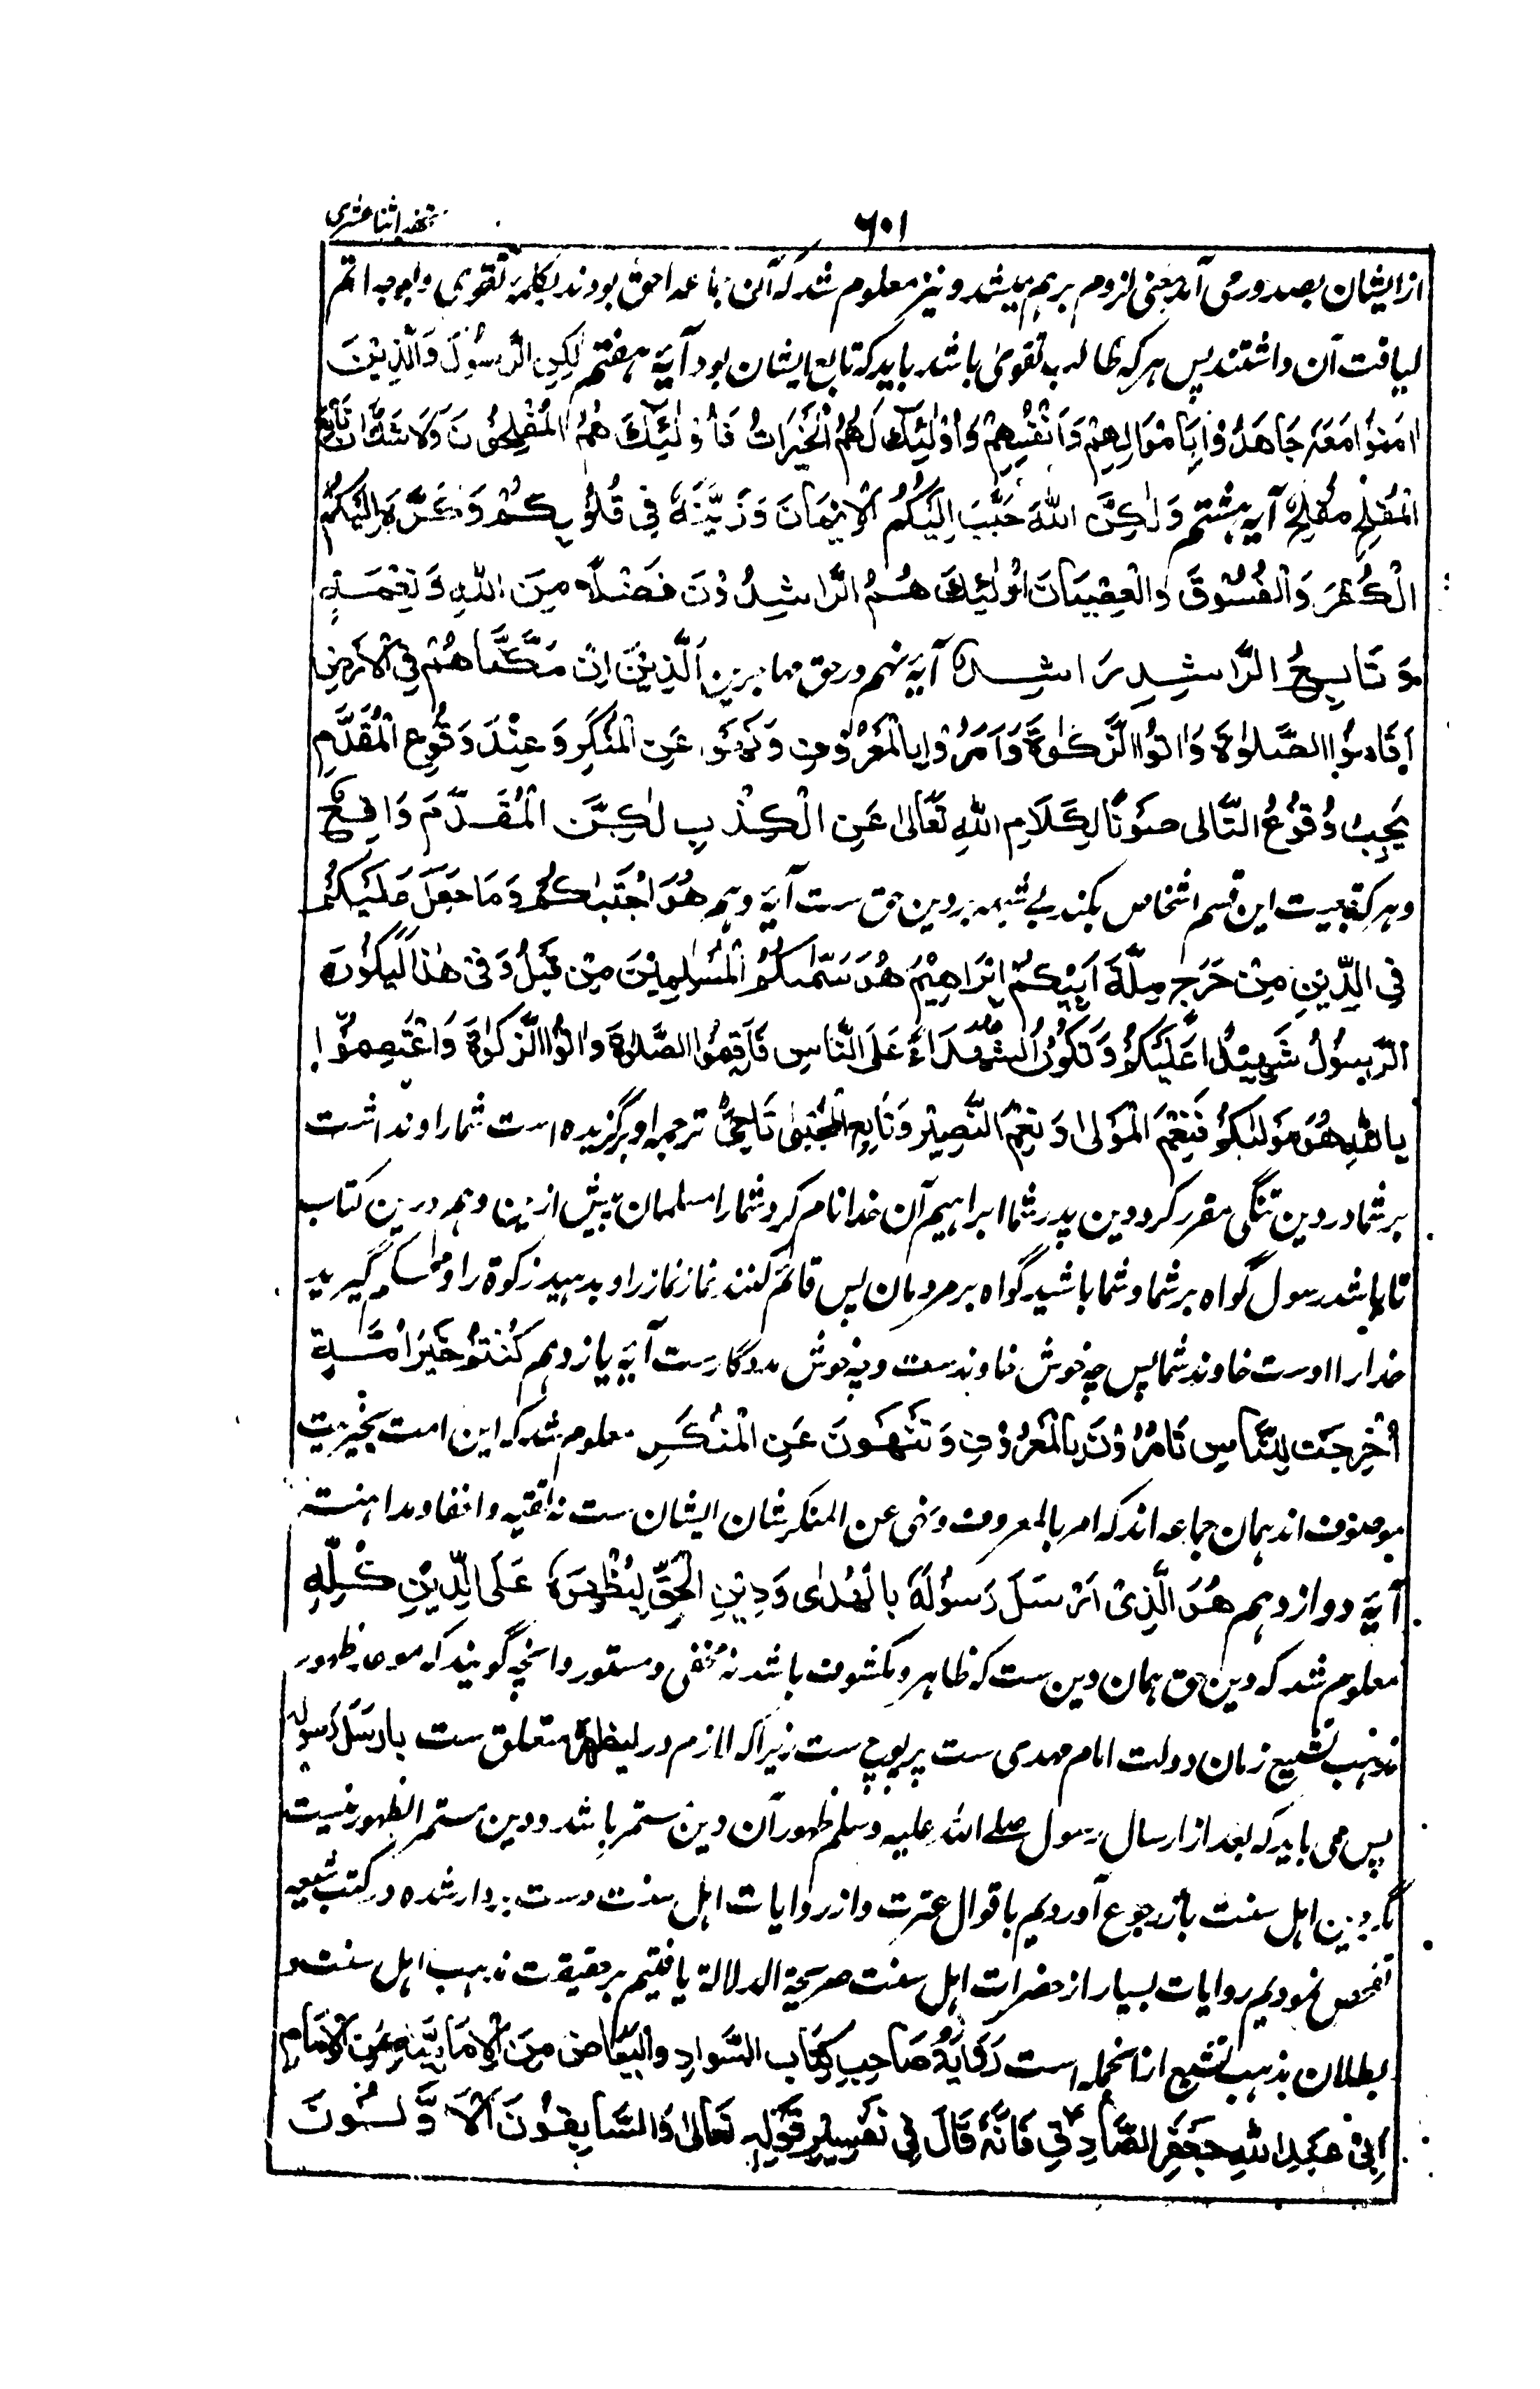 تحفه اثنا عشری
۶۰۱
از ایشان بصدور می آمد بمعنی لزوم بر هم میشد و نیز معلوم شد که آن جماعه احق بودند بکلمهٔ تقوی و بوجه اتم
لیاقت آن داشتند پس هر که طالب تقوی باشد باید که تابع ایشان بود آیهٔ هفتم لٰكِنِ الرَّسُوْلُ وَالَّذِيْنَ
اٰمَنُوْا مَعَهٗ جَاهَدُوْا بِاَمْوَالِهِمْ وَاَنْفُسِهِمْ وَاُوْلٰئِكَ لَهُمُ الْخَيْرَاتُ فَاُوْلٰئِكَ هُمُ الْمُفْلِحُوْنَ وَلَا شَكَّ اَنَّ تَابِعَ
الْمُفْلِحِ مُفْلِحٌ آیه هشتم وَلٰكِنَّ اللهَ حَبَّبَ اِلَيْكُمُ الْاِيْمَانَ وَزَيَّنَهٗ فِيْ قُلُوْبِكُمْ وَكَرَّهَ اِلَيْكُمُ
الْكُفْرَ وَالْفُسُوْقَ وَالْعِصْيَانَ اُوْلٰئِكَ هُمُ الرَّاشِدُوْنَ فَضْلًا مِنَ اللهِ وَنِعْمَةً
وَتَابِعُ الرَّاشِدِ رَاشِدٌ آیهٔ نهم در حق مهاجرین اَلَّذِيْنَ اِنْ مَكَّنَّاهُمْ فِي الْاَرْضِ
اَقَامُوا الصَّلٰوةَ وَاٰتَوُا الزَّكٰوةَ وَاَمَرُوْا بِالْمَعْرُوْفِ وَنَهَوْا عَنِ الْمُنْكَرِ وَعِنْدَ وُقُوْعِ الْمُقَدَّمِ
يَجِبُ وُقُوْعُ التَّالِى صَوْنًا لِكَلَامِ اللهِ تَعَالٰى عَنِ الْكِذْبِ لٰكِنَّ الْمُقَدَّمَ وَاقِعٌ
و هر که تبعیت این قسم اشخاص بکند بی شبهه بر دین حق ست آیهٔ دهم هُوَ اجْتَبٰكُمْ وَمَا جَعَلَ عَلَيْكُمْ
فِي الدِّيْنِ مِنْ حَرَجٍ مِلَّةَ اَبِيْكُمْ اِبْرَاهِيْمَ هُوَ سَمّٰىكُمُ الْمُسْلِمِيْنَ مِنْ قَبْلُ وَفِىْ هٰذَا لِيَكُوْنَ
الرَّسُوْلُ شَهِيْدًا عَلَيْكُمْ وَتَكُوْنُوْا شُهَدَاءَ عَلَى النَّاسِ فَاَقِيْمُوا الصَّلٰوةَ وَاٰتُوا الزَّكٰوةَ وَاعْتَصِمُوْا
بِاللهِ هُوَ مَوْلٰىكُمْ فَنِعْمَ الْمَوْلٰى وَنِعْمَ النَّصِيْرُ وَتَابِعُ الْمُجْتَبٰى نَاجٍ ترجمه او برگزیده است شما را و نداشت
بر شما در دین تنگی مقرر کرد دین پدر شما ابراهیم آن خدا نام کرد شما را مسلمان پیش ازین و هم درین کتاب
تا باشد رسول گواه بر شما و شما باشید گواه بر مردمان پس قائم کنند نماز نماز را و بدهید زکوة را و محکم گیرید
خدا را اوست خاوند شما پس چه خوش خاوند ست و چه خوش مددگارست آیهٔ یازدهم كُنْتُمْ خَيْرَ اُمَّةٍ
اُخْرِجَتْ لِلنَّاسِ تَأْمُرُوْنَ بِالْمَعْرُوْفِ وَتَنْهَوْنَ عَنِ الْمُنْكَرِ معلوم شد که این امت بخیریت
موصوف اند همان جماعه اند که امر بالمعروف و نهی عن المنکر شان ایشان ست نه تقیه و اخفا و مداهنت
آیهٔ دوازدهم هُوَ الَّذِىْ اَرْسَلَ رَسُوْلَهٗ بِالْهُدٰى وَدِيْنِ الْحَقِّ لِيُظْهِرَهٗ عَلَى الدِّيْنِ كُلِّهٖ
معلوم شد که دین حق همان دین ست که ظاهر و مکشوف باشد نه مخفی و مستور و آنچه گویند که موعد ظهور
مذهب تشیع زمان دولت امام مهدی ست پر پوچ ست زیرا که لازم در لیظهره متعلق ست بارسل رسوله
پس می باید که بعد از ارسال رسول صلے الله علیه وسلم ظهور آن دین مستمر باشد و دین مستمر الظهور نیست
مگر دین اهل سنت باز رجوع آوردیم باقوال عترت و از روایات اهل سنت دست بردار شده در کتب شیعه
تفحص نمودیم روایات بسیار از حضرات اهل سنت صریحة الدلالة یافتیم بر حقیقت مذهب اهل سنت و
بطلان مذهب تشیع از انجمله است رَوَايَةُ صَاحِبِ كِتَابِ السَّوَادِ وَالْبَيَاضِ مِنَ الْاِمَامِيَّةِ عَنِ الْاِمَامِ
اَبِىْ عَبْدِ اللهِ جَعْفَرِ الصَّادِقِ فَاِنَّهٗ قَالَ فِيْ تَفْسِيْرِ قَوْلِهٖ تَعَالٰى وَالسَّابِقُوْنَ الْاَوَّلُوْنَ